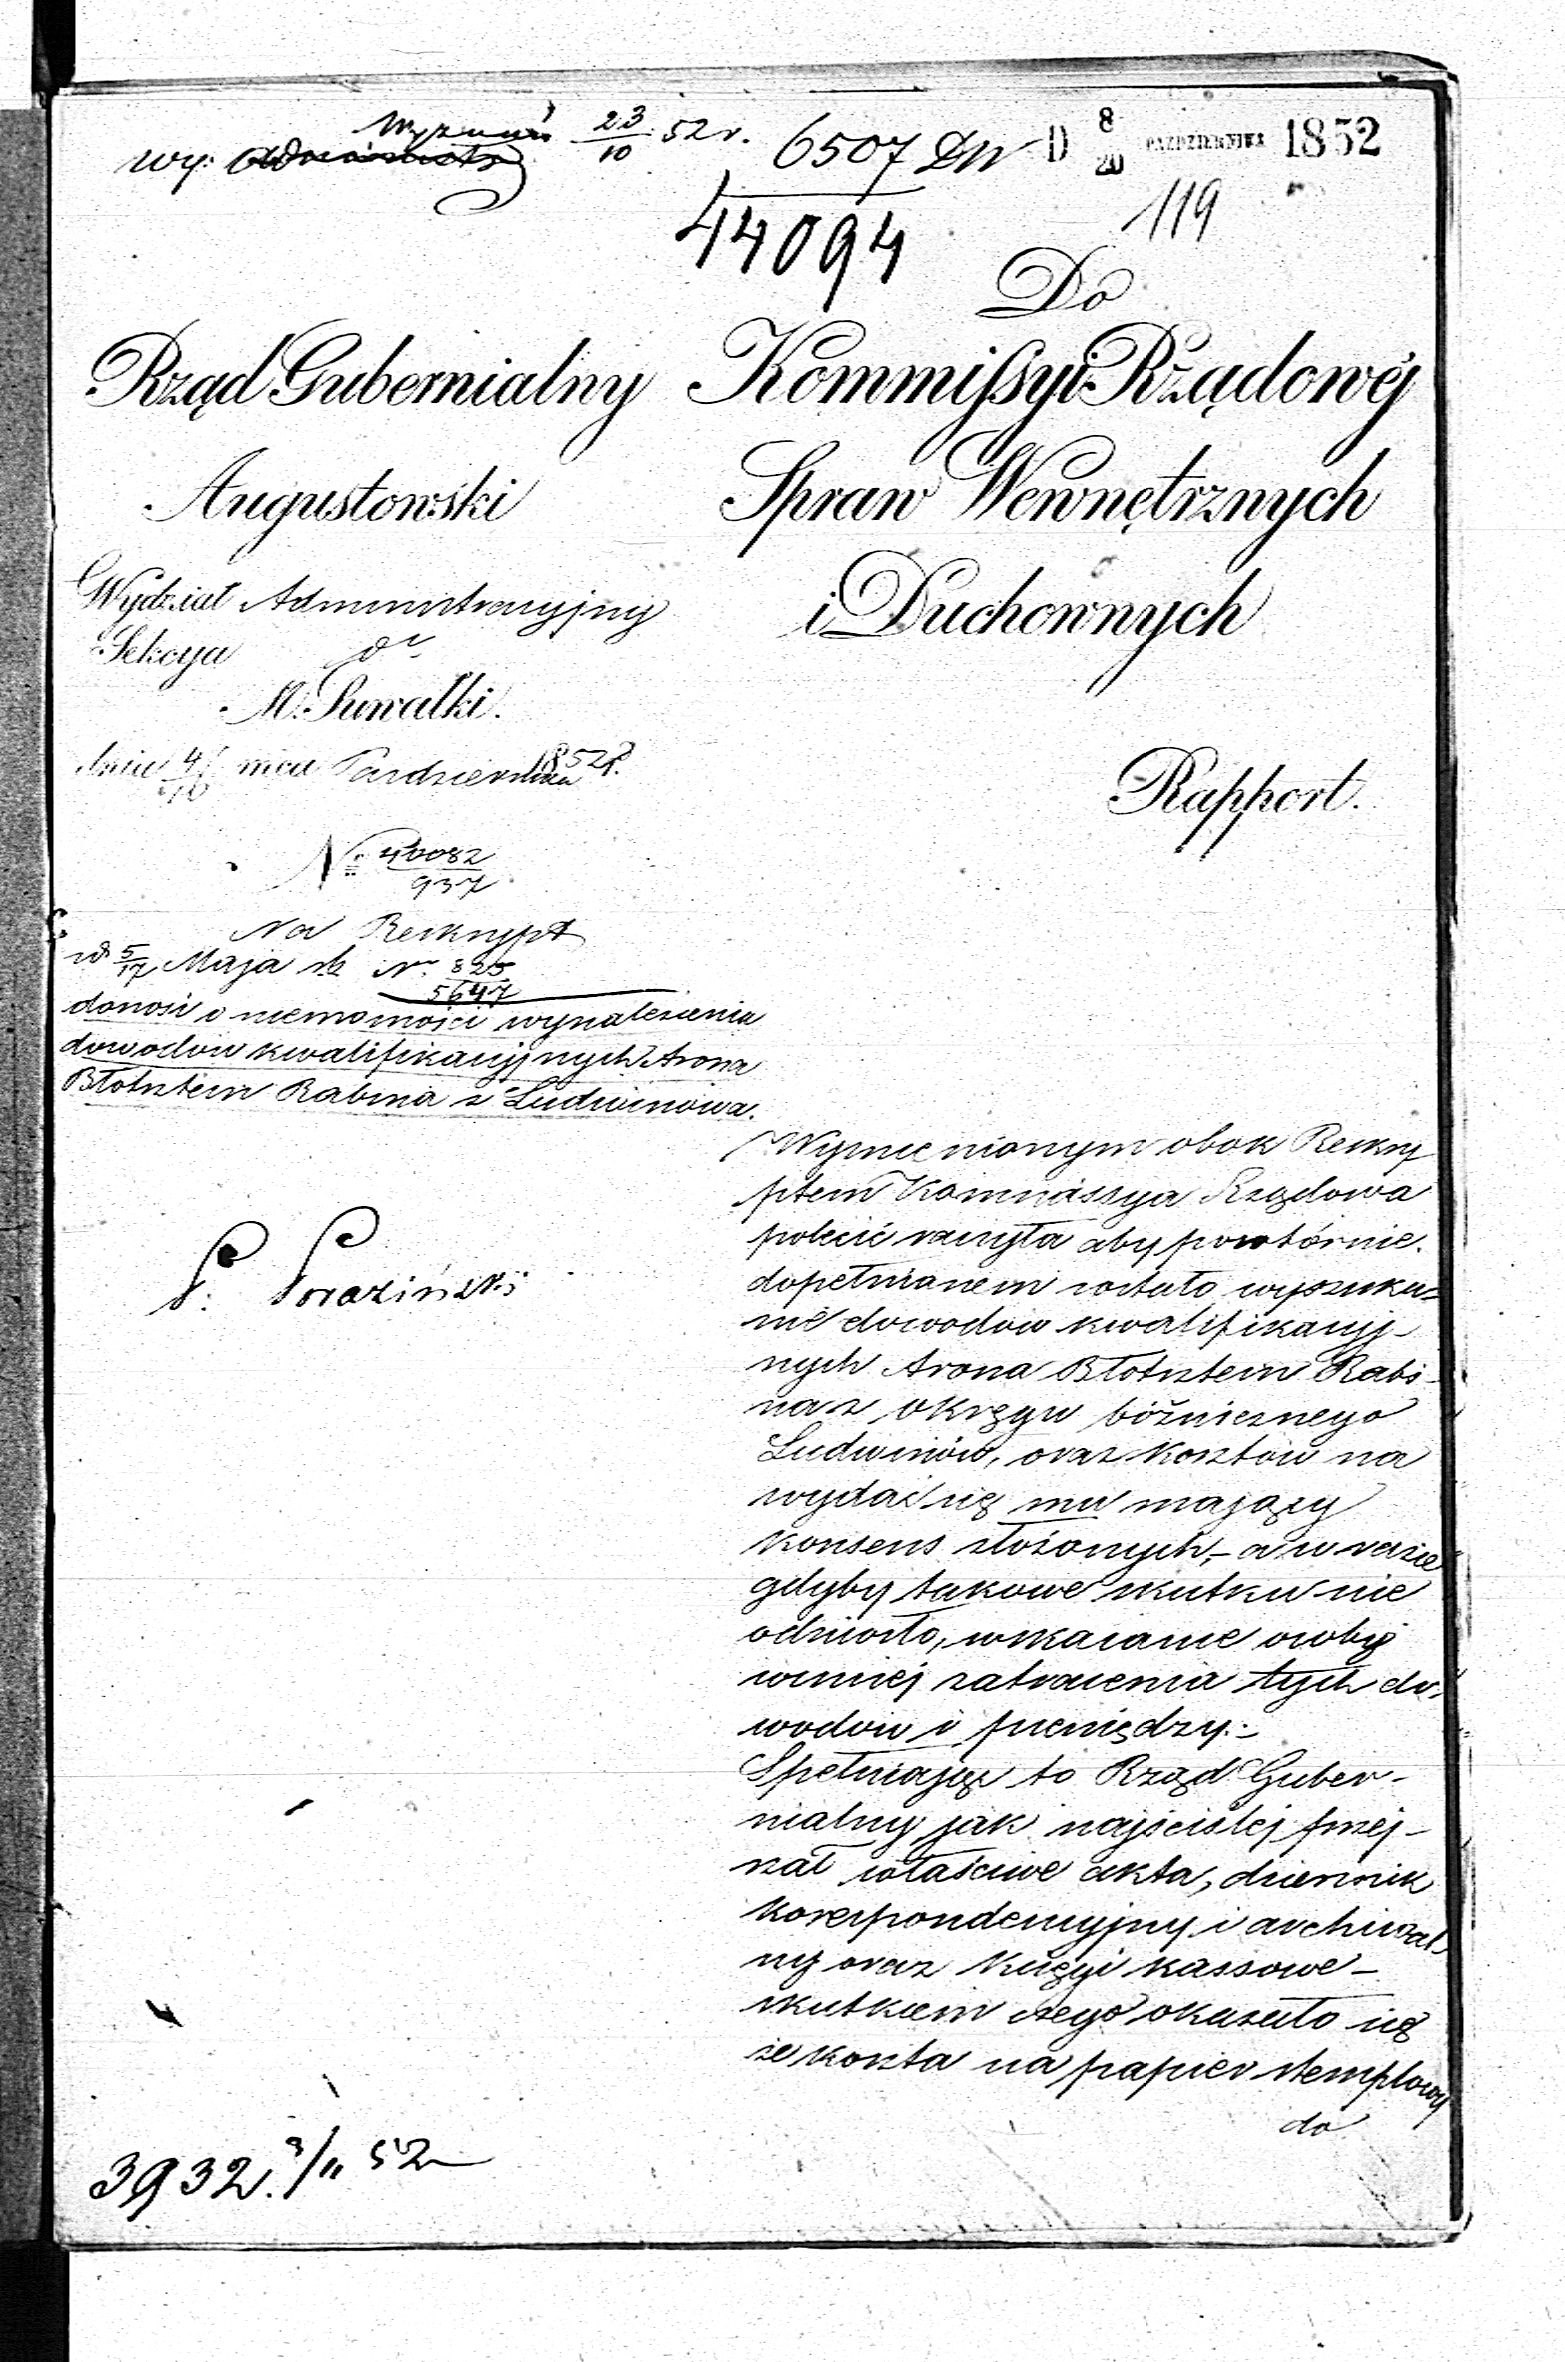 Wyznań 23/10 52 r. 6507 DW D 8/20 PAŹDZIERNIKA 1852
wy:
44094
119
Do
Rząd Gubernialny
Augustowski
Wydział Administracyjny
Sekcya dto
M. Suwałki.
dnia 4/16 mca Października 1852 r.
No 40082/937
Na Reskrypt
z d. 5/17 Maja rb No 325/5647
donosi o niemożności wynalezienia
dowodów kwalifikacyjnych Arona
Błotsztein Rabina z Ludwinowa.
Kommissyi Rządowéj
Spraw Wewnętrznych
i Duchownych
Rapport.
Wymienionym obok Reskry
ptem Kommissya Rządowa
polecić raczyła aby powtórnie
dopełnianem zostało wyszuka=
nie dowodów kwalifikacyj-
nych Arona Błotsztein Rabi-
na z okręgu bóżniczego
Ludwinów, oraz kosztów na
wydać się mu mający
konsens złożonych, - a w razie
gdyby takowe skutku nie
odniosło, wskazanie osoby
winnej zatracenia tych do-
wodów i pieniędzy.-
Spełniając to Rząd Guber-
nialny jak najściślej przej-
rzał właściwe akta, dziennik
korespondencyjny i archiwal-
ny oraz księgi kassowe -
skutkiem czego okazało się
że koszta na papier stemplowy
do
3932. 3/11 52